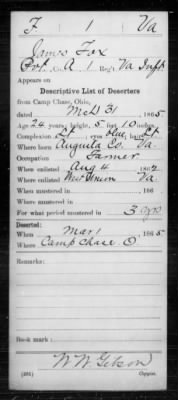 F 1 Va
James Fox
Pvt, Co. A, 1 Reg't Va Inft.
Appears on
Descriptive List of Deserters
from Camp Chase, Ohio,
dated Mch 31, 1865
Age 24 years; height, 5 feet 10 inches.
Complexion Lt; eyes blue; hair Lt
Where born Augusta Co. Va.
Occupation Farmer
When enlisted Aug 4, 1862
Where enlisted West Union Va.
When mustered in , 186
Where mustered in
For what period mustered in 3 yrs
Deserted:
When Mar 1, 1865
Where Camp Chase O
Remarks:
Book mark:
W W Gibson
Copyist.